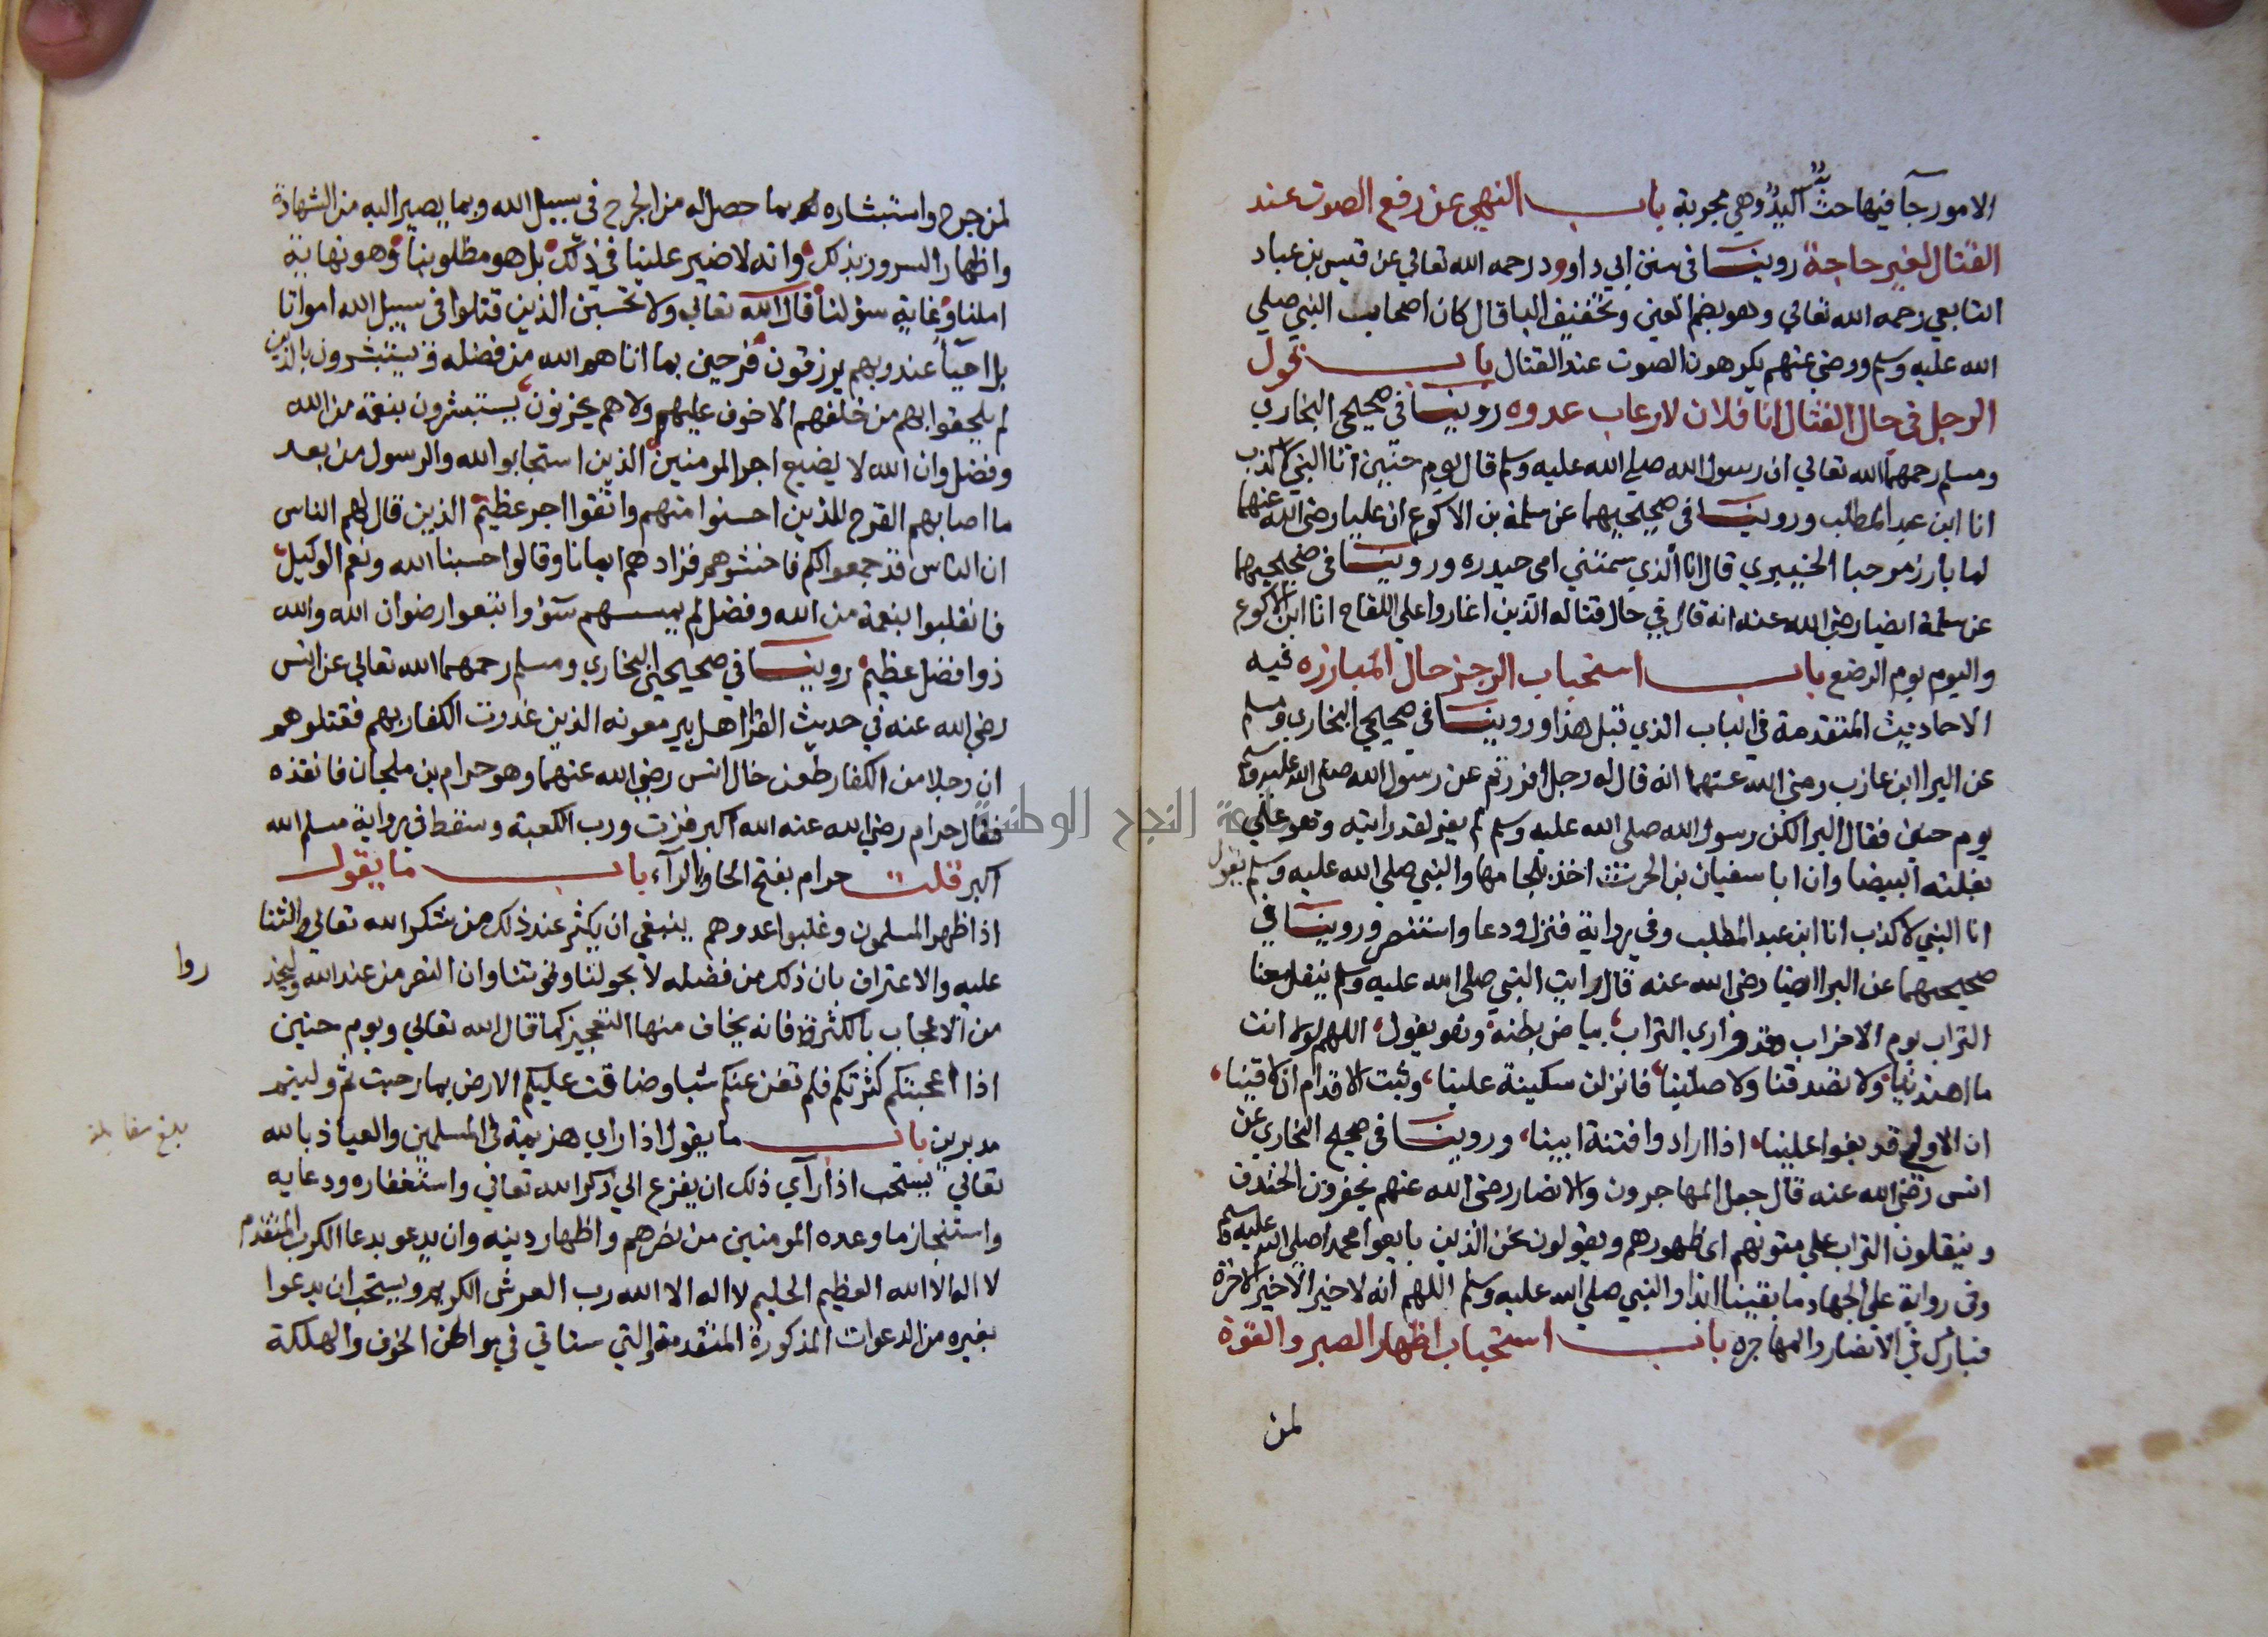 الامور رجآ فيها حثٌّ اكيدٌ وهي مجربة باب النهي عن رفع الصوت عند
القتال لغير حاجة روينا في سنن ابي داوود رحمه الله تعالي عن قيس بن عباد
التابعي رحمه الله تعالي وهو بضم العين وتخفيف البا قال كان اصحاب النبي صلي
الله عليه وسلم ورضي عنهم يكرهون الصوت عند القتال باب قول
الرجل في حال القتال انا فلان لارعاب عدوه روينا في صحيحي البخاري
ومسلم رحمهما الله تعالي ان رسول الله صلي الله عليه وسلم قال يوم حنين انا النبي لا كذب
انا ابن عبد المطلب وروينا في صحيحيهما عن سلمة بن الاكوع ان عليا رضي الله عنهما
لما بارز مرحبا الخيبري قال انا الذي سمتني امي حيدره وروينا في صحيحيهما
عن سلمة ايضا رضي الله عنه انه قال في حال قتاله الذين اغاروا علي اللقاح انا ابن الاكوع
واليوم يوم الرضع باب استحباب الرجز حال المبارزه فيه
الاحاديث المتقدمة في الباب الذي قبل هذا وروينا في صحيحي البخاري ومسلم
عن البرا ابن عازب رضي الله عنهما انه قال له رجل افررتم عن رسول الله صلي الله عليه وسلم
يوم حنين فقال البرا لكن رسول الله صلي الله عليه وسلم لم يفر لقد رايته وهو علي
بغلته البيضا وان ابا سفيان بن الحرث اخذ بلجامها والنبي صلي الله عليه وسلم يقول
انا النبي لا كذب انا ابن عبد المطلب وفي رواية فنزل ودعا واستنصر وروينا في
صحيحيهما عن البرا ايضا رضي الله عنه قال رايت النبي صلي الله عليه وسلم ينقل معنا
التراب يوم الاحزاب وقد واري التراب بياض بطنه وهو يقول اللهم لولا انت
ما اهتدينا ولا تصدقنا ولا صلينا فانزلن سكينة علينا وثبت الاقدام ان لاقينا
ان الاولي قد بغوا علينا اذا ارادوا فتنة ابينا وروينا في صحيح البخاري عن
انس رضي الله عنه قال جعل المهاجرون والانصار رضي الله عنهم يحفرون الخندق
وينقلون التراب علي متونهم اي ظهورهم ويقولون نحن الذين بايعوا محمدا صلي الله عليه وسلم
وفي رواية علي الجهاد ما بقينا ابدا والنبي صلي الله عليه وسلم اللهم انه لا خير الا خير الاخرة
فبارك في الانصار والمهاجره باب استحباب اظهار الصبر والقوة
لمن
لمن جرح واستبشاره بما حصل له من الجرح في سبيل الله وبما يصير اليه من الشهادة
واظهار السرور بذلك وانه لا ضير علينا في ذلك بل هو مطلوبنا وهو نهاية
املنا وغاية سؤلنا قال الله تعالي ولا تحسبن الذين قتلوا في سبيل الله امواتا
بل احيآ عند ربهم يرزقون فرحين بما اتاهم الله من فضله ويستبشرون بالذين
لم يلحقوا بهم من خلفهم الا خوف عليهم ولا هم يحزنون يستبشرون بنعمة من الله
وفضل وان الله لا يضيع اجر المومنين الذين استجابوا لله والرسول من بعد
ما اصابهم القرح للذين احسنوا منهم واتقوا اجر عظيم الذين قال لهم الناس
ان الناس قد جمعوا لكم فاخشوهم فزادهم ايمانا وقالوا حسبنا الله ونعم الوكيل
فانقلبوا بنعمة من الله وفضل لم يمسسهم سوٓء واتبعوا رضوان الله والله
ذوا فضل عظيم روينا في صحيحي البخاري ومسلم رحمهما الله تعالي عن انس
رضي الله عنه في حديث القرا اهل بير معونه الذين غدرت الكفار بهم فقتلوهم
ان رجلا من الكفار طعن خال انس رضي الله عنهما وهو حرام بن ملحان فانفذه
فقال حرام رضي الله عنه الله اكبر فزت ورب الكعبة وسقط في رواية مسلم الله
اكبر قلت حرام بفتح الحا والرآء باب ما يقول
اذا ظهر المسلمون وغلبوا عدوهم ينبغي ان يكثر عند ذلك من شكر الله تعالي والثنا
عليه والاعتراف بان ذلك من فضله لا بحولنا وقوتنا وان النصر من عند الله وليحذ
روا
من الاعجاب بالكثرة فانه يخاف منها التعجيز كما قال الله تعالي ويوم حنين
اذا اعجبتكم كثرتكم فلم تغن عنكم شيا وضاقت عليكم الارض بما رحبت ثم وليتم
مدبرين باب ما يقول اذا راي هزيمة في المسلمين والعياذ بالله
بلغ مقابلة
تعالي يستحب اذا رآي ذلك ان يفزع الي ذكر الله تعالي واستغفاره ودعايه
واستنجاز ما وعده المومنين من نصرهم واظهار دينه وان يدعو بدعا الكرب المتقدم
لا اله الا الله العظيم الحليم لا اله الا الله رب العرش الكريم ويستحب ان يدعوا
بغيره من الدعوات المذكورة المتقدمة والتي ستاتي في مواطن الخوف والهلكة
جامعة النجاح الوطنية